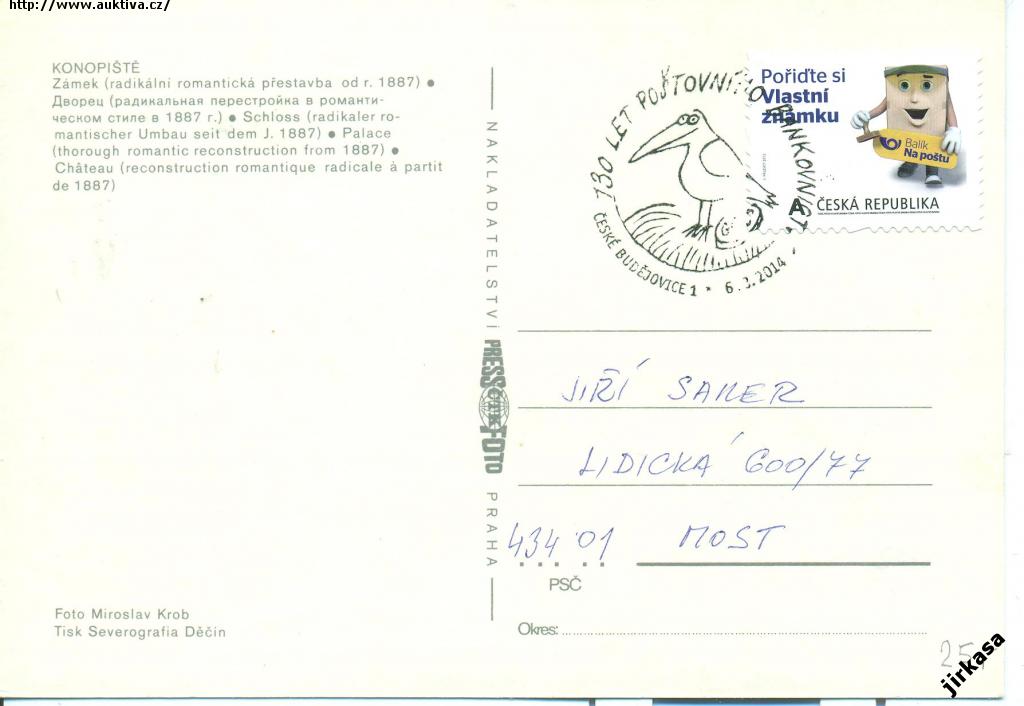 http://www.auktiva.cz/
KONOPIŠTĚ
Zámek (radikální romantická přestavba od r. 1887) ●
Дворец (радикальная перестройка в романти-
ческом стиле в 1887 г.) ● Schloss (radikaler ro-
mantischer Umbau seit dem J. 1887) ● Palace
(thorough romantic reconstruction from 1887) ●
Château (reconstruction romantique radicale à partit
de 1887)
Foto Miroslav Krob
Tisk Severografia Děčín
NAKLADATELSTVÍ
PRESSFOTO
ČTK
PRAHA
130 LET POŠTOVNÍHO BANKOVNICT
ČESKÉ BUDĚJOVICE 1 * 6.3.2014
Pořiďte si
Vlastní
známku
Balík
Na poštu
A ČESKÁ REPUBLIKA
JIŘÍ SAMER
LIDICKÁ 600/77
434 01 MOST
PSČ
Okres:
25,
jirkasa